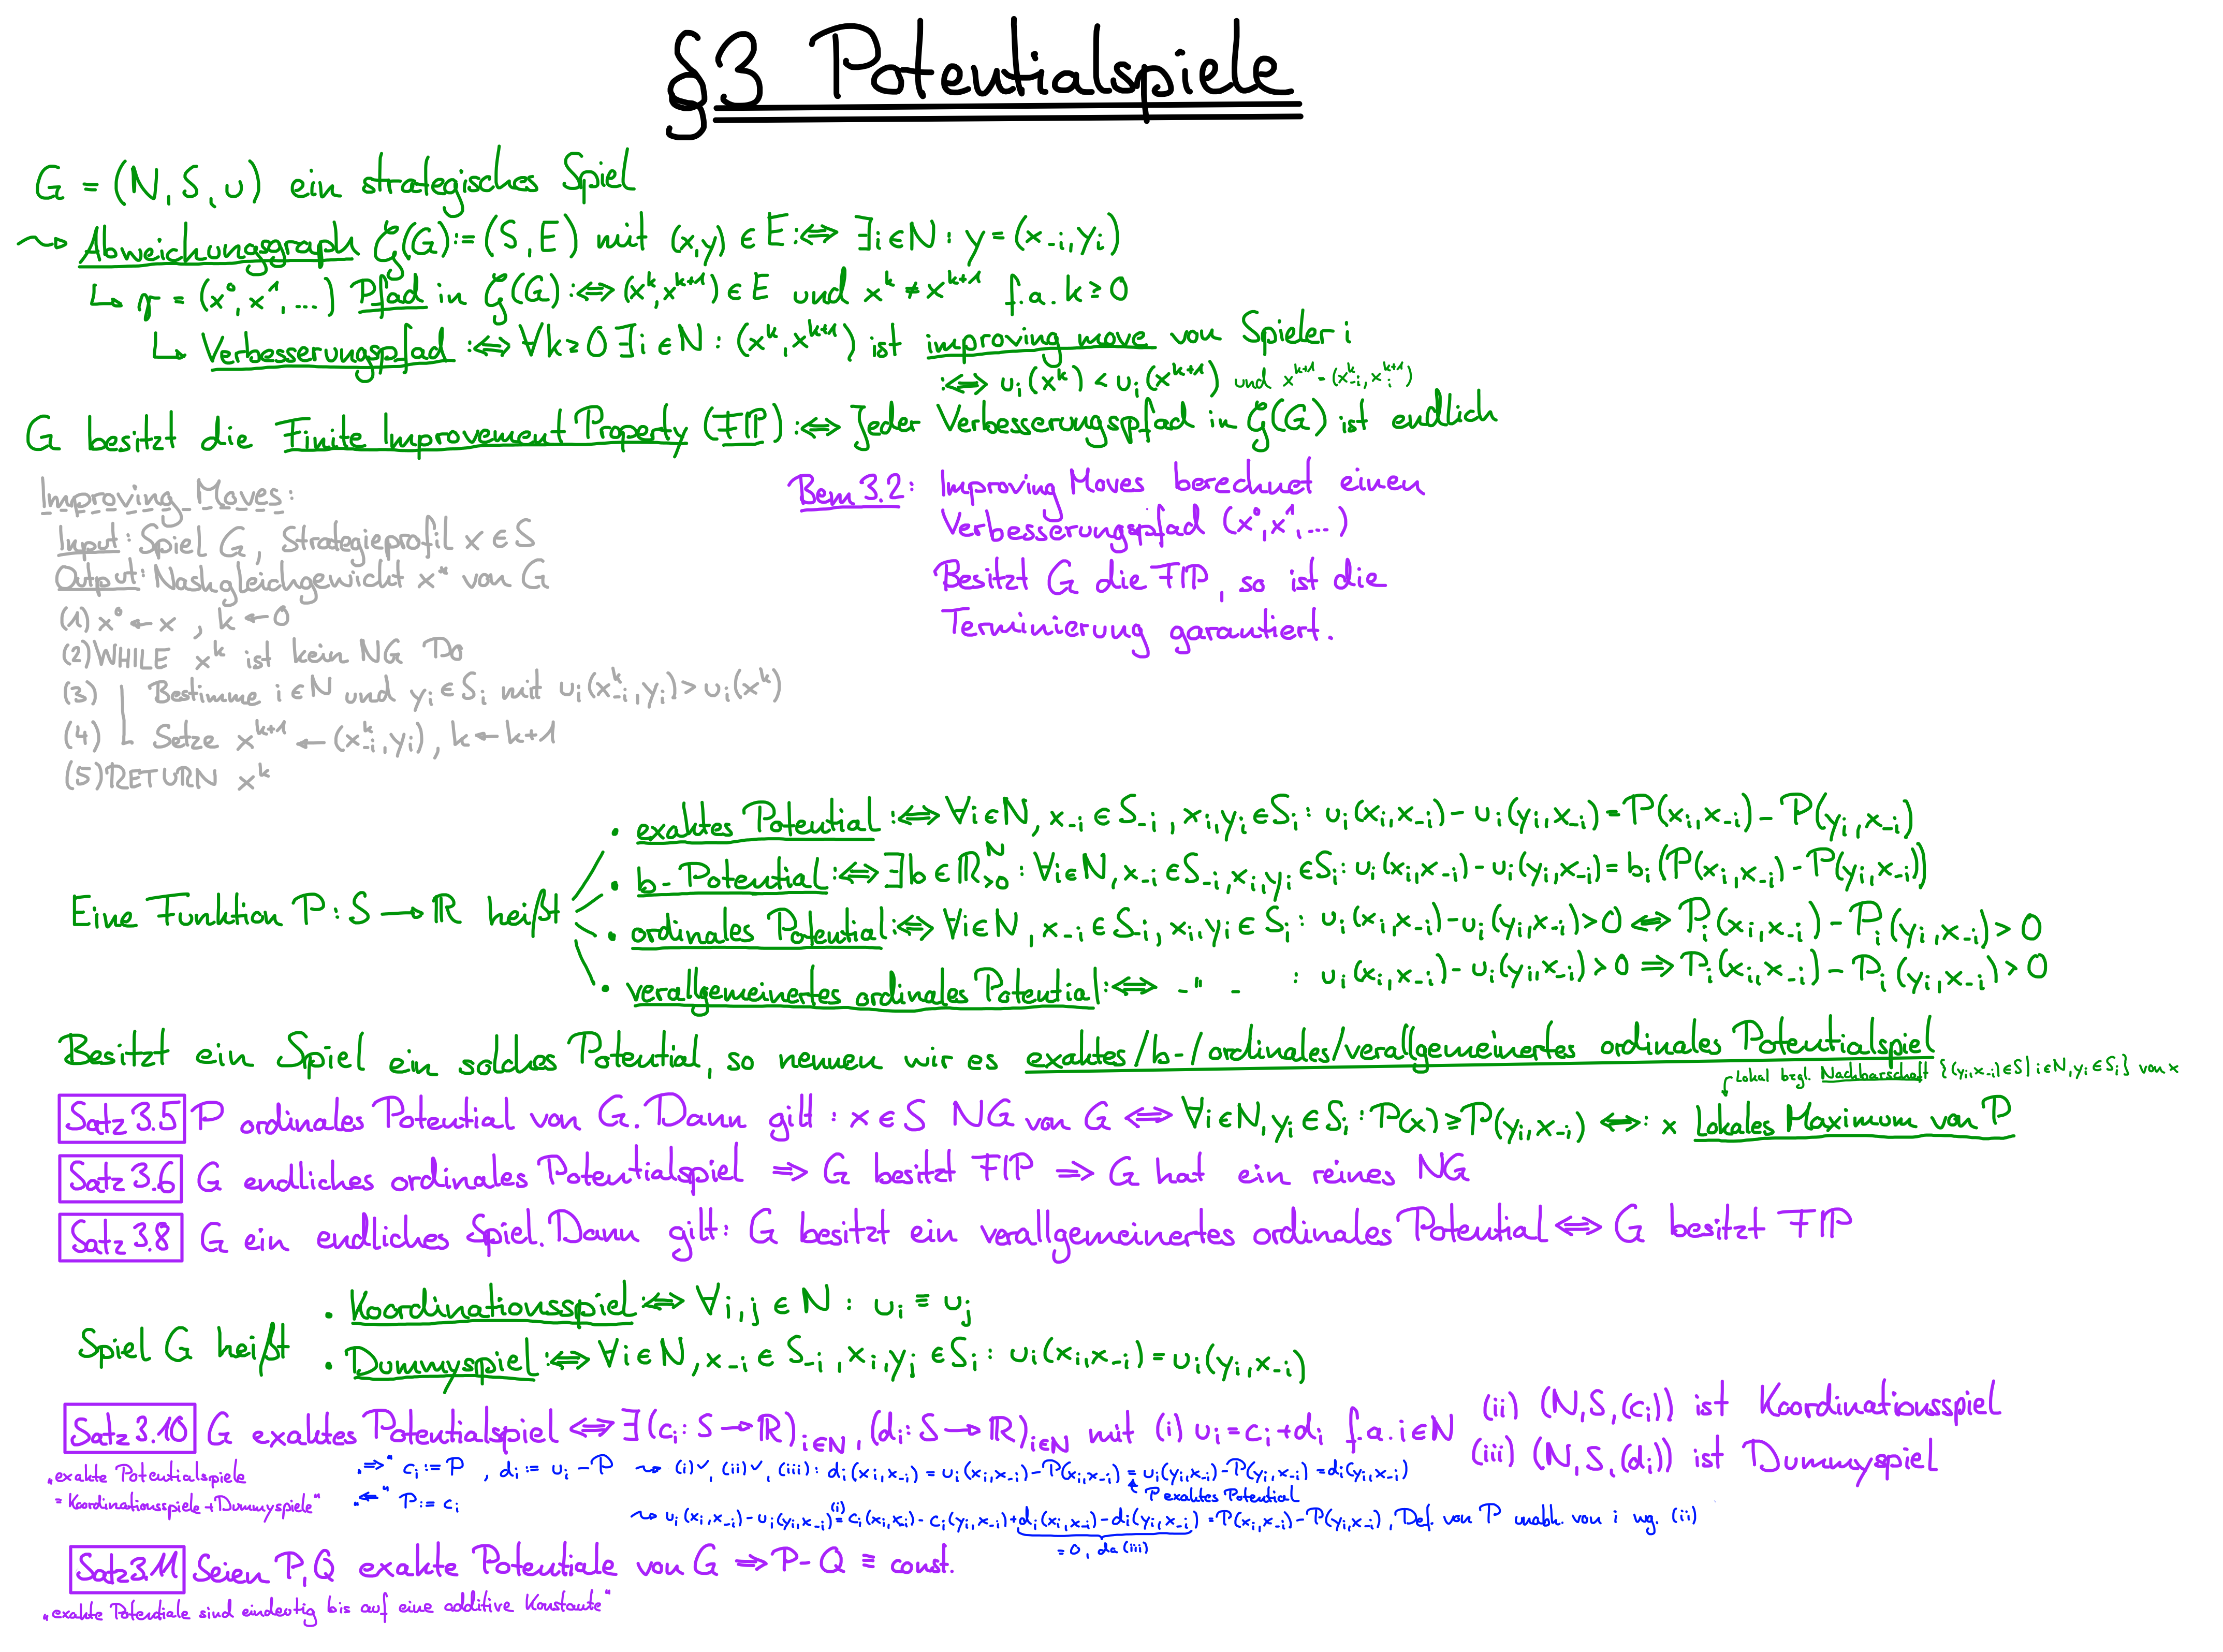 §3 Potentialspiele
G = (N, S, u) ein strategisches Spiel
⇝ Abweichungsgraph 𝒢(G) := (S, E) mit (x,y) ∈ E :⇔ ∃i∈N : y = (x₋ᵢ, yᵢ)
↳ γ = (x⁰, x¹, ...) Pfad in 𝒢(G) :⇔ (xᵏ, xᵏ⁺¹) ∈ E und xᵏ ≠ xᵏ⁺¹ f.a. k ≥ 0
↳ Verbesserungspfad :⇔ ∀k≥0 ∃i∈N : (xᵏ, xᵏ⁺¹) ist improving move von Spieler i
:⇔ uᵢ(xᵏ) < uᵢ(xᵏ⁺¹) und xᵏ⁺¹ = (xᵏ₋ᵢ, xᵢᵏ⁺¹)
G besitzt die Finite Improvement Property (FIP) :⇔ Jeder Verbesserungspfad in 𝒢(G) ist endlich
Improving Moves:
Input: Spiel G, Strategieprofil x ∈ S
Output: Nashgleichgewicht x* von G
(1) x⁰ ← x , k ← 0
(2) WHILE xᵏ ist kein NG DO
(3) Bestimme i∈N und yᵢ∈Sᵢ mit uᵢ(xᵏ₋ᵢ, yᵢ) > uᵢ(xᵏ)
(4) Setze xᵏ⁺¹ ← (xᵏ₋ᵢ, yᵢ), k ← k+1
(5) RETURN xᵏ
Bem 3.2: Improving Moves berechnet einen
Verbesserungspfad (x⁰, x¹, ...)
Besitzt G die FIP, so ist die
Terminierung garantiert.
Eine Funktion P : S → ℝ heißt
• exaktes Potential :⇔ ∀i∈N, x₋ᵢ∈S₋ᵢ, xᵢ,yᵢ∈Sᵢ : uᵢ(xᵢ,x₋ᵢ) - uᵢ(yᵢ,x₋ᵢ) = P(xᵢ,x₋ᵢ) - P(yᵢ,x₋ᵢ)
• b-Potential :⇔ ∃b∈ℝᴺ>₀ : ∀i∈N, x₋ᵢ∈S₋ᵢ, xᵢ,yᵢ∈Sᵢ : uᵢ(xᵢ,x₋ᵢ) - uᵢ(yᵢ,x₋ᵢ) = bᵢ(P(xᵢ,x₋ᵢ) - P(yᵢ,x₋ᵢ))
• ordinales Potential :⇔ ∀i∈N, x₋ᵢ∈S₋ᵢ, xᵢ,yᵢ∈Sᵢ : uᵢ(xᵢ,x₋ᵢ) - uᵢ(yᵢ,x₋ᵢ) > 0 ⇔ Pᵢ(xᵢ,x₋ᵢ) - Pᵢ(yᵢ,x₋ᵢ) > 0
• verallgemeinertes ordinales Potential :⇔ -"- : uᵢ(xᵢ,x₋ᵢ) - uᵢ(yᵢ,x₋ᵢ) > 0 ⇒ Pᵢ(xᵢ,x₋ᵢ) - Pᵢ(yᵢ,x₋ᵢ) > 0
Besitzt ein Spiel ein solches Potential, so nennen wir es exaktes/b-/ordinales/verallgemeinertes ordinales Potentialspiel
Lokal bzgl. Nachbarschaft {(yᵢ,x₋ᵢ)∈S | i∈N, yᵢ∈Sᵢ} von x
Satz 3.5 P ordinales Potential von G. Dann gilt: x∈S NG von G ⇔ ∀i∈N, yᵢ∈Sᵢ : P(x) ≥ P(yᵢ,x₋ᵢ) ⇔: x Lokales Maximum von P
Satz 3.6 G endliches ordinales Potentialspiel ⇒ G besitzt FIP ⇒ G hat ein reines NG
Satz 3.8 G ein endliches Spiel. Dann gilt: G besitzt ein verallgemeinertes ordinales Potential ⇔ G besitzt FIP
Spiel G heißt
• Koordinationsspiel :⇔ ∀i,j∈N : uᵢ ≡ uⱼ
• Dummyspiel :⇔ ∀i∈N, x₋ᵢ∈S₋ᵢ, xᵢ,yᵢ∈Sᵢ : uᵢ(xᵢ,x₋ᵢ) = uᵢ(yᵢ,x₋ᵢ)
Satz 3.10 G exaktes Potentialspiel ⇔ ∃(cᵢ : S→ℝ)ᵢ∈N, (dᵢ : S→ℝ)ᵢ∈N mit (i) uᵢ = cᵢ + dᵢ f.a. i∈N
(ii) (N,S,(cᵢ)) ist Koordinationsspiel
(iii) (N,S,(dᵢ)) ist Dummyspiel
„exakte Potentialspiele
= Koordinationsspiele + Dummyspiele"
„⇒" cᵢ := P , dᵢ := uᵢ - P ⇝ (i)✓, (ii)✓, (iii): dᵢ(xᵢ,x₋ᵢ) = uᵢ(xᵢ,x₋ᵢ) - P(xᵢ,x₋ᵢ) = uᵢ(yᵢ,x₋ᵢ) - P(yᵢ,x₋ᵢ) = dᵢ(yᵢ,x₋ᵢ)
↑ P exaktes Potential
„⇐" P := cᵢ
⇝ uᵢ(xᵢ,x₋ᵢ) - uᵢ(yᵢ,x₋ᵢ) =⁽ⁱ⁾ cᵢ(xᵢ,xᵢ) - cᵢ(yᵢ,x₋ᵢ) + dᵢ(xᵢ,x₋ᵢ) - dᵢ(yᵢ,x₋ᵢ) = P(xᵢ,x₋ᵢ) - P(yᵢ,x₋ᵢ), Def. von P unabh. von i wg. (ii)
= 0, da (iii)
Satz 3.11 Seien P,Q exakte Potentiale von G ⇒ P - Q ≡ const.
„exakte Potentiale sind eindeutig bis auf eine additive Konstante"